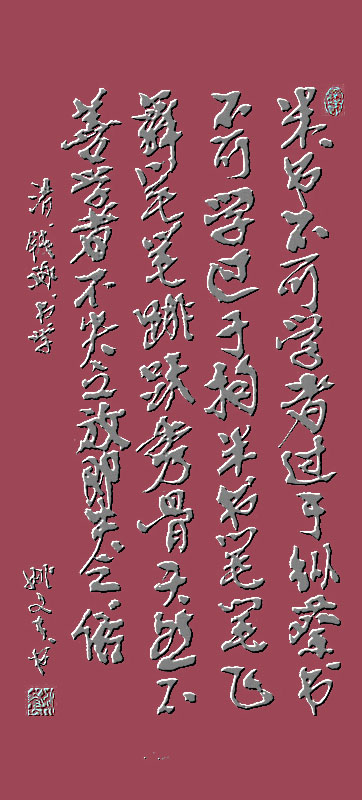 米书不可学者过于纵蔡书
不可学过于拘米书笔笔飞
舞笔笔跳跃秀骨天然不
善学者不失之放即失之俗
清 钱泳 书学